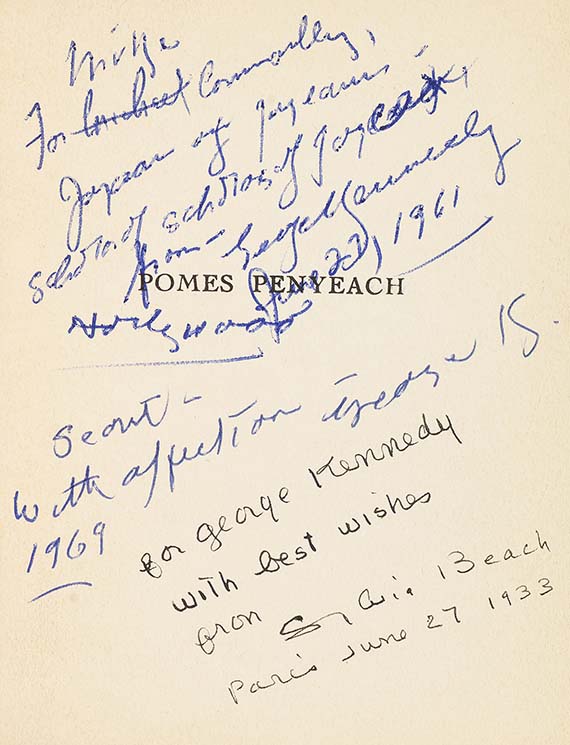 Mike
For Connolly,
Joycean of Joyceans –
scholar of scholars of Joyce
from – George Kennedy
June 22, 1961
POMES PENYEACH
Hollywood
Scout –
With affection George K.
1969
for George Kennedy
with best wishes
from Sylvia Beach
Paris June 27 1933